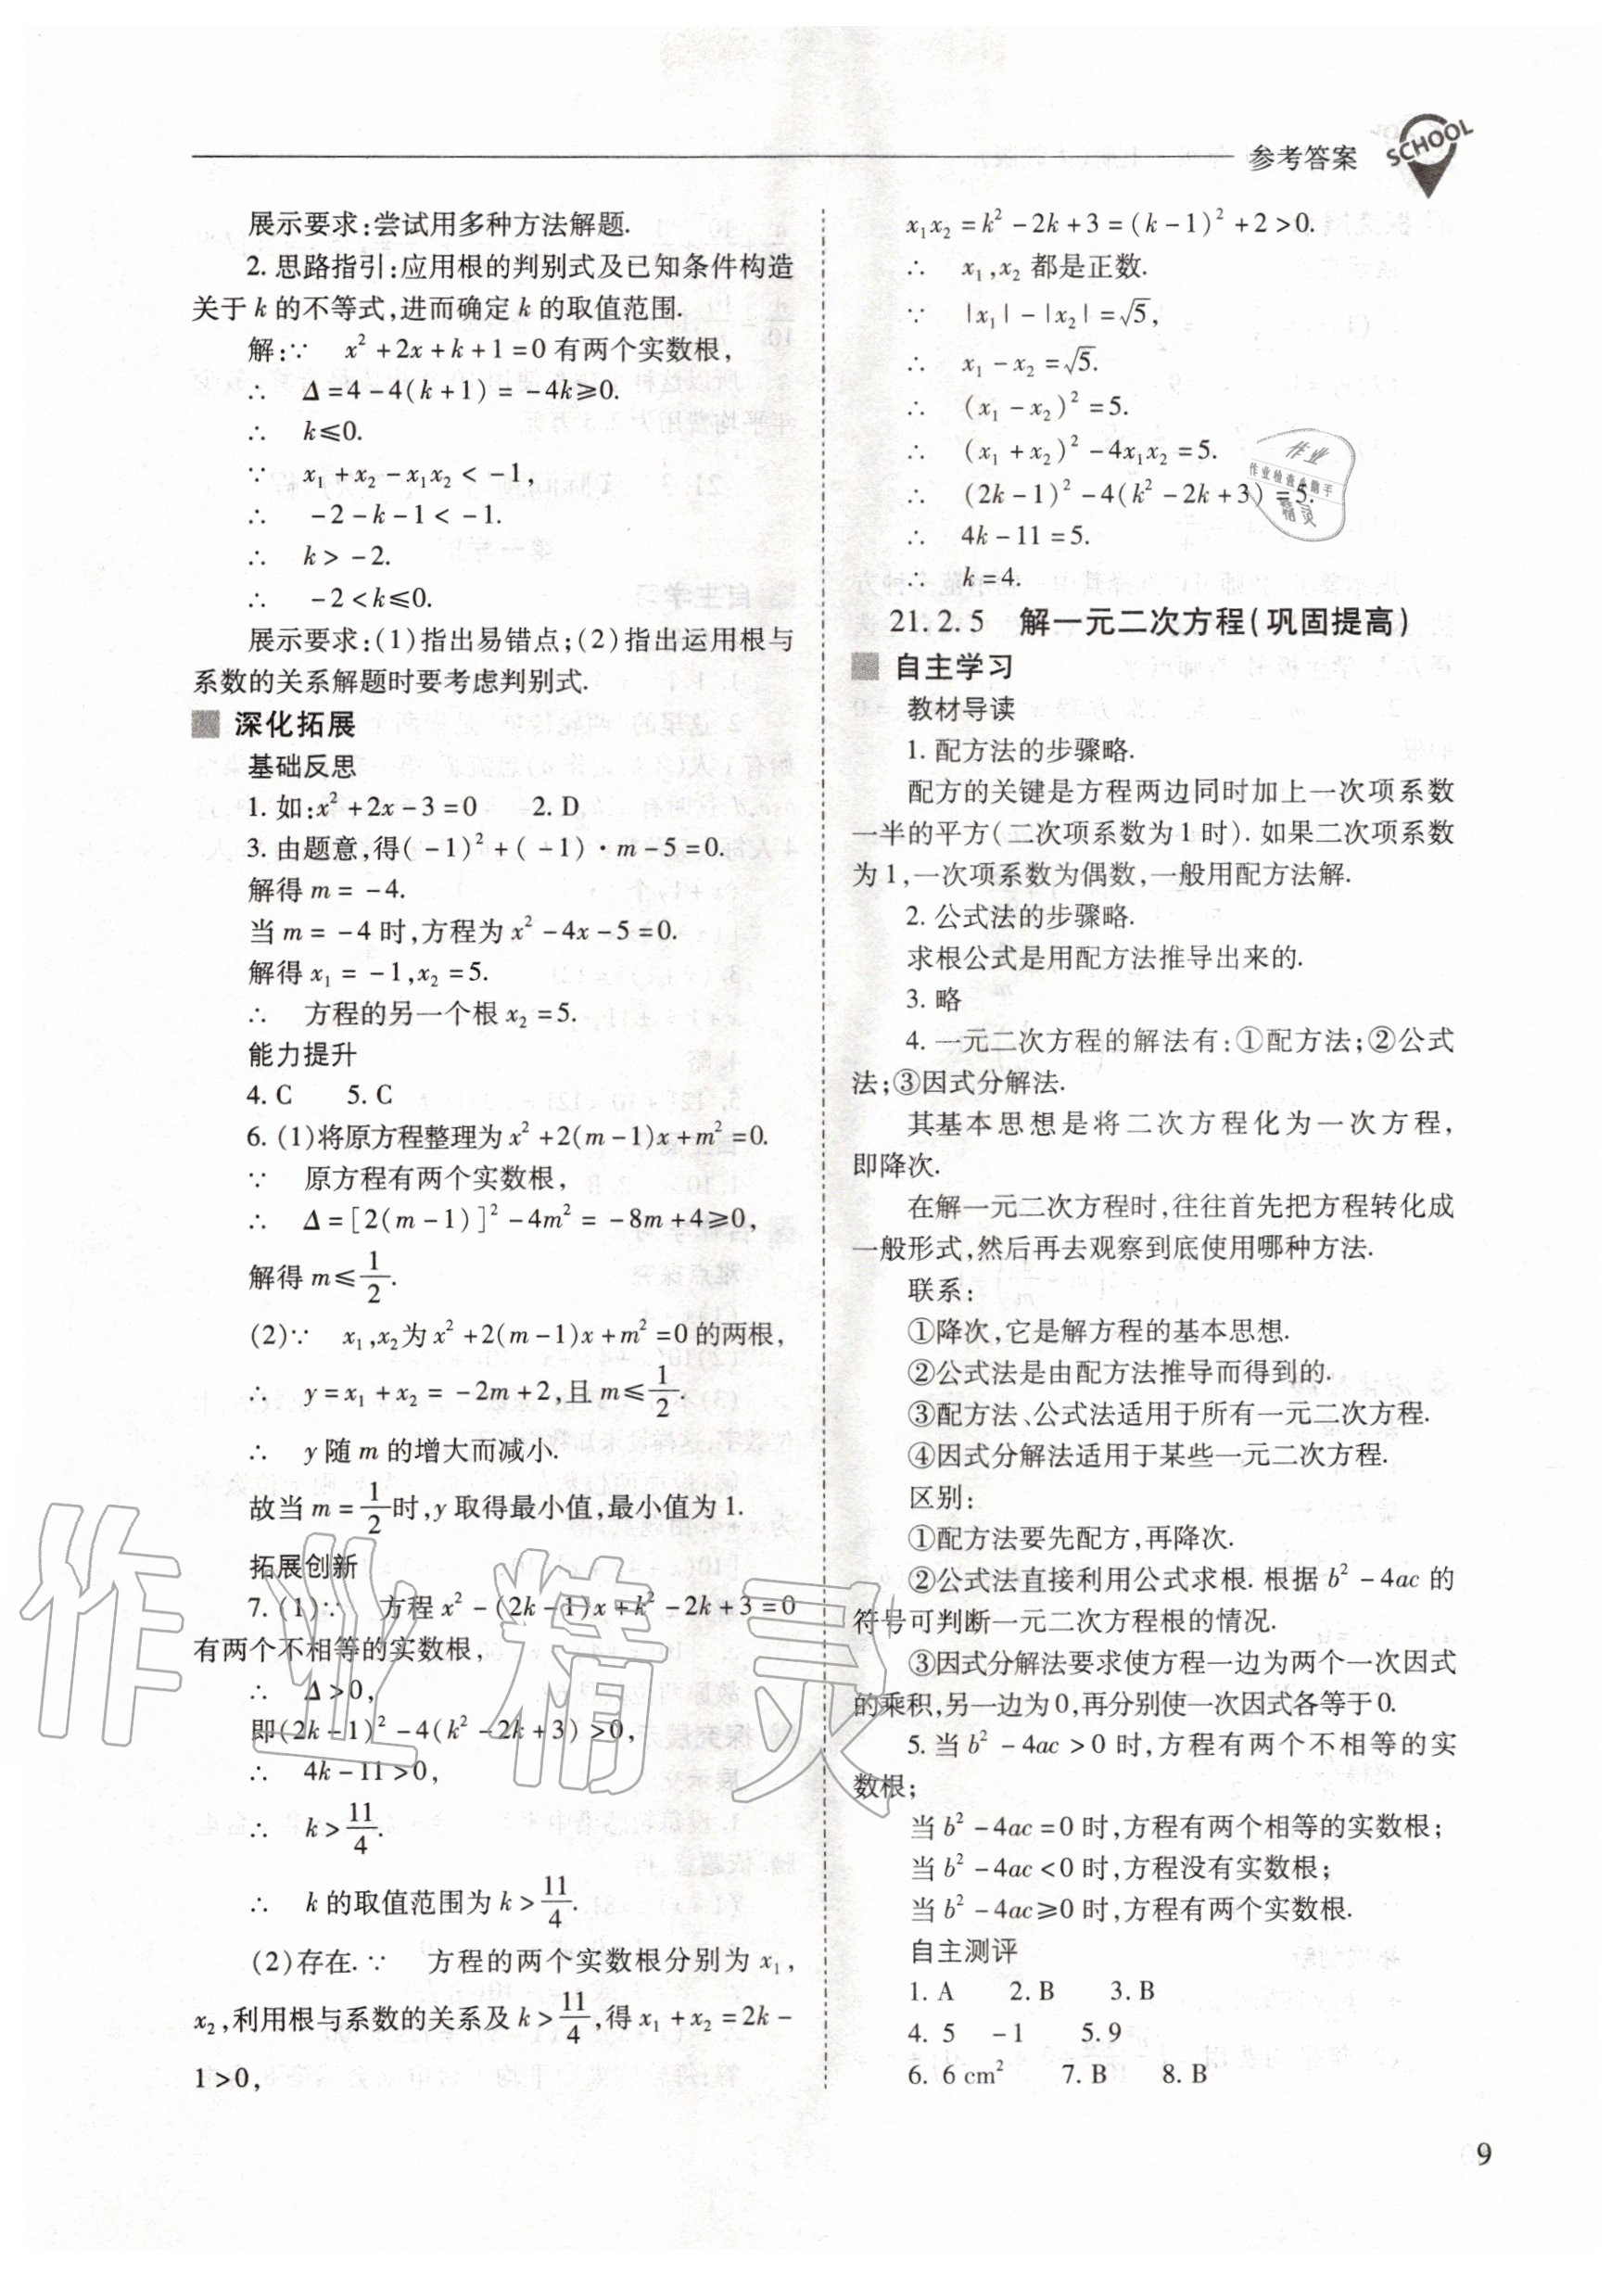 参考答案
SCHOOL
展示要求:尝试用多种方法解题.
2. 思路指引:应用根的判别式及已知条件构造
关于 k 的不等式,进而确定 k 的取值范围.
解:∵ x²+2x+k+1=0 有两个实数根,
∴ Δ=4-4(k+1)=-4k≥0.
∴ k≤0.
∵ x₁+x₂-x₁x₂<-1,
∴ -2-k-1<-1.
∴ k>-2.
∴ -2<k≤0.
展示要求:(1)指出易错点;(2)指出运用根与
系数的关系解题时要考虑判别式.
深化拓展
基础反思
1. 如:x²+2x-3=0 2. D
3. 由题意,得(-1)²+(-1)·m-5=0.
解得 m=-4.
当 m=-4 时,方程为 x²-4x-5=0.
解得 x₁=-1,x₂=5.
∴ 方程的另一个根 x₂=5.
能力提升
4. C 5. C
6. (1)将原方程整理为 x²+2(m-1)x+m²=0.
∵ 原方程有两个实数根,
∴ Δ=[2(m-1)]²-4m²=-8m+4≥0,
解得 m≤1/2.
(2)∵ x₁,x₂为 x²+2(m-1)x+m²=0 的两根,
∴ y=x₁+x₂=-2m+2,且 m≤1/2.
∴ y 随 m 的增大而减小.
故当 m=1/2时,y 取得最小值,最小值为 1.
拓展创新
7. (1)∵ 方程 x²-(2k-1)x+k²-2k+3=0
有两个不相等的实数根,
∴ Δ>0,
即(2k-1)²-4(k²-2k+3)>0,
∴ 4k-11>0,
∴ k>11/4.
∴ k 的取值范围为 k>11/4.
(2)存在. ∵ 方程的两个实数根分别为 x₁,
x₂,利用根与系数的关系及 k>11/4,得 x₁+x₂=2k-
1>0,
x₁x₂=k²-2k+3=(k-1)²+2>0.
∴ x₁,x₂ 都是正数.
∵ |x₁|-|x₂|=√5,
∴ x₁-x₂=√5.
∴ (x₁-x₂)²=5.
∴ (x₁+x₂)²-4x₁x₂=5.
∴ (2k-1)²-4(k²-2k+3)=5.
∴ 4k-11=5.
∴ k=4.
21.2.5 解一元二次方程(巩固提高)
自主学习
教材导读
1. 配方法的步骤略.
配方的关键是方程两边同时加上一次项系数
一半的平方(二次项系数为 1 时). 如果二次项系数
为 1,一次项系数为偶数,一般用配方法解.
2. 公式法的步骤略.
求根公式是用配方法推导出来的.
3. 略
4. 一元二次方程的解法有:①配方法;②公式
法;③因式分解法.
其基本思想是将二次方程化为一次方程,
即降次.
在解一元二次方程时,往往首先把方程转化成
一般形式,然后再去观察到底使用哪种方法.
联系:
①降次,它是解方程的基本思想.
②公式法是由配方法推导而得到的.
③配方法、公式法适用于所有一元二次方程.
④因式分解法适用于某些一元二次方程.
区别:
①配方法要先配方,再降次.
②公式法直接利用公式求根. 根据 b²-4ac 的
符号可判断一元二次方程根的情况.
③因式分解法要求使方程一边为两个一次因式
的乘积,另一边为 0,再分别使一次因式各等于 0.
5. 当 b²-4ac>0 时,方程有两个不相等的实
数根;
当 b²-4ac=0 时,方程有两个相等的实数根;
当 b²-4ac<0 时,方程没有实数根;
当 b²-4ac≥0 时,方程有两个实数根.
自主测评
1. A 2. B 3. B
4. 5 -1 5. 9
6. 6 cm² 7. B 8. B
9
作业
作业检查小助手
精灵
作业精灵